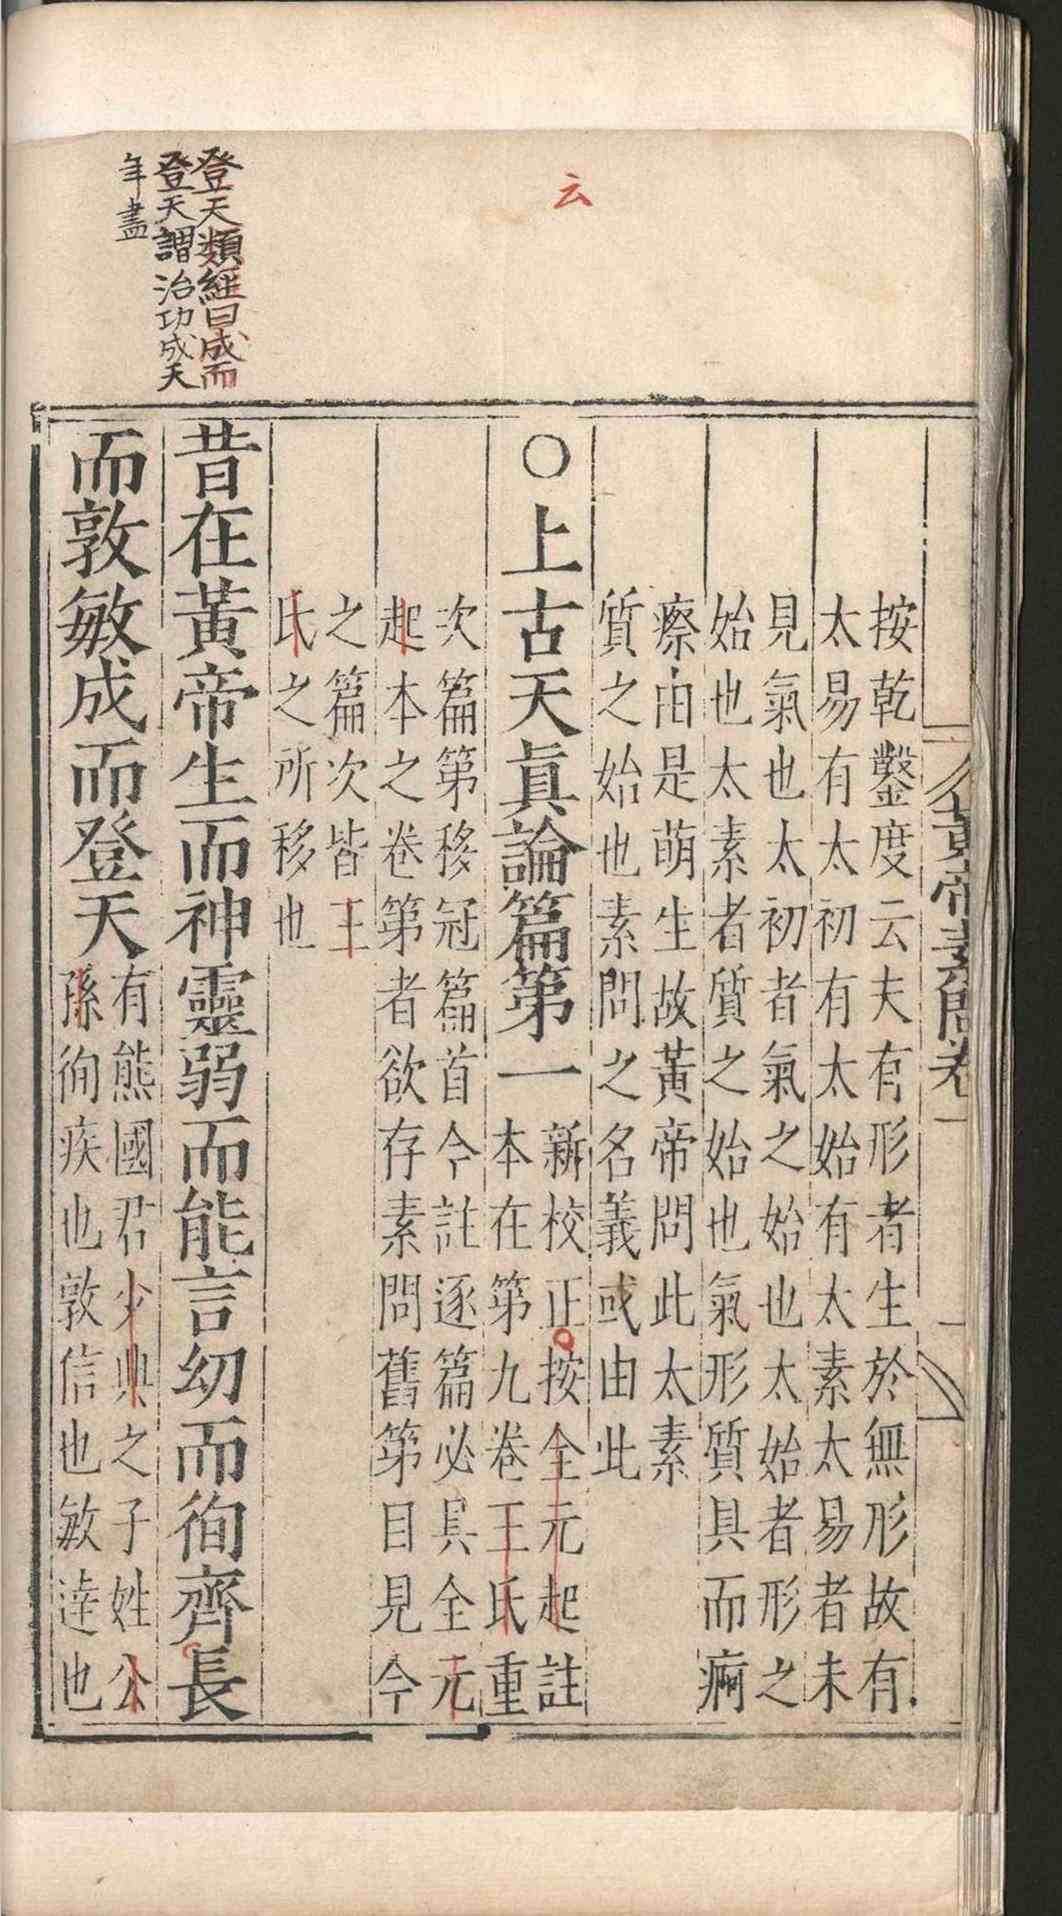 云
登天類經曰成而
登天謂治功成天
年盡
黃帝素問卷一
按乾鑿度云夫有形者生於無形故有
太易有太初有太始有太素太易者未
見氣也太初者氣之始也太始者形之
始也太素者質之始也氣形質具而痾
瘵由是萌生故黃帝問此太素
質之始也素問之名義或由此
○上古天眞論篇第一
新校正按全元起註
本在第九卷王氏重
次篇第移冠篇首今註逐篇必具全元
起本之卷第者欲存素問舊第目見今
之篇次皆王
氏之所移也
昔在黃帝生而神靈弱而能言幼而徇齊長
而敦敏成而登天
有熊國君少典之子姓公
孫徇疾也敦信也敏達也